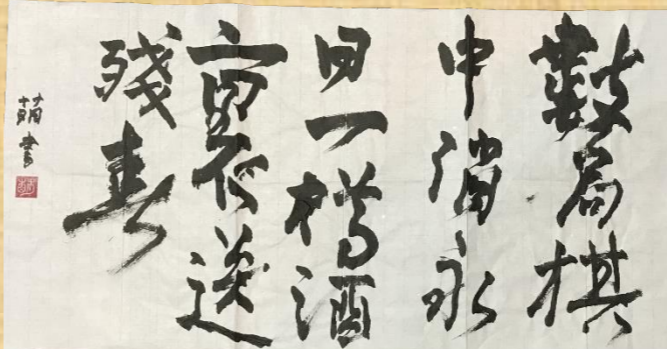 數局棋
中消永
日一樽酒
裏送
殘春
書